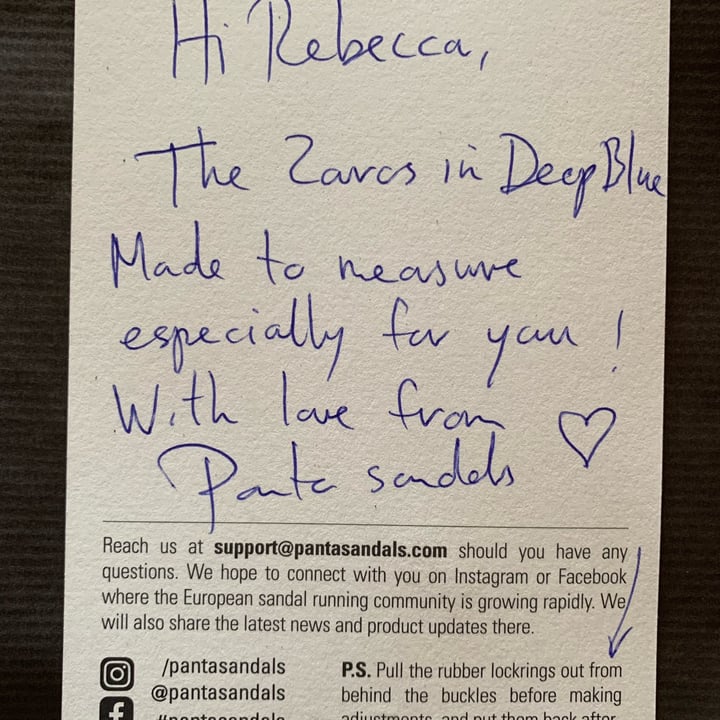 Hi Rebecca,
The Zaros in Deep Blue
Made to measure
especially for you!
With love from
Panta sandals
Reach us at support@pantasandals.com should you have any
questions. We hope to connect with you on Instagram or Facebook
where the European sandal running community is growing rapidly. We
will also share the latest news and product updates there.
/pantasandals
@pantasandals
#pantasandals
P.S. Pull the rubber lockrings out from
behind the buckles before making
adjustments, and put them back after